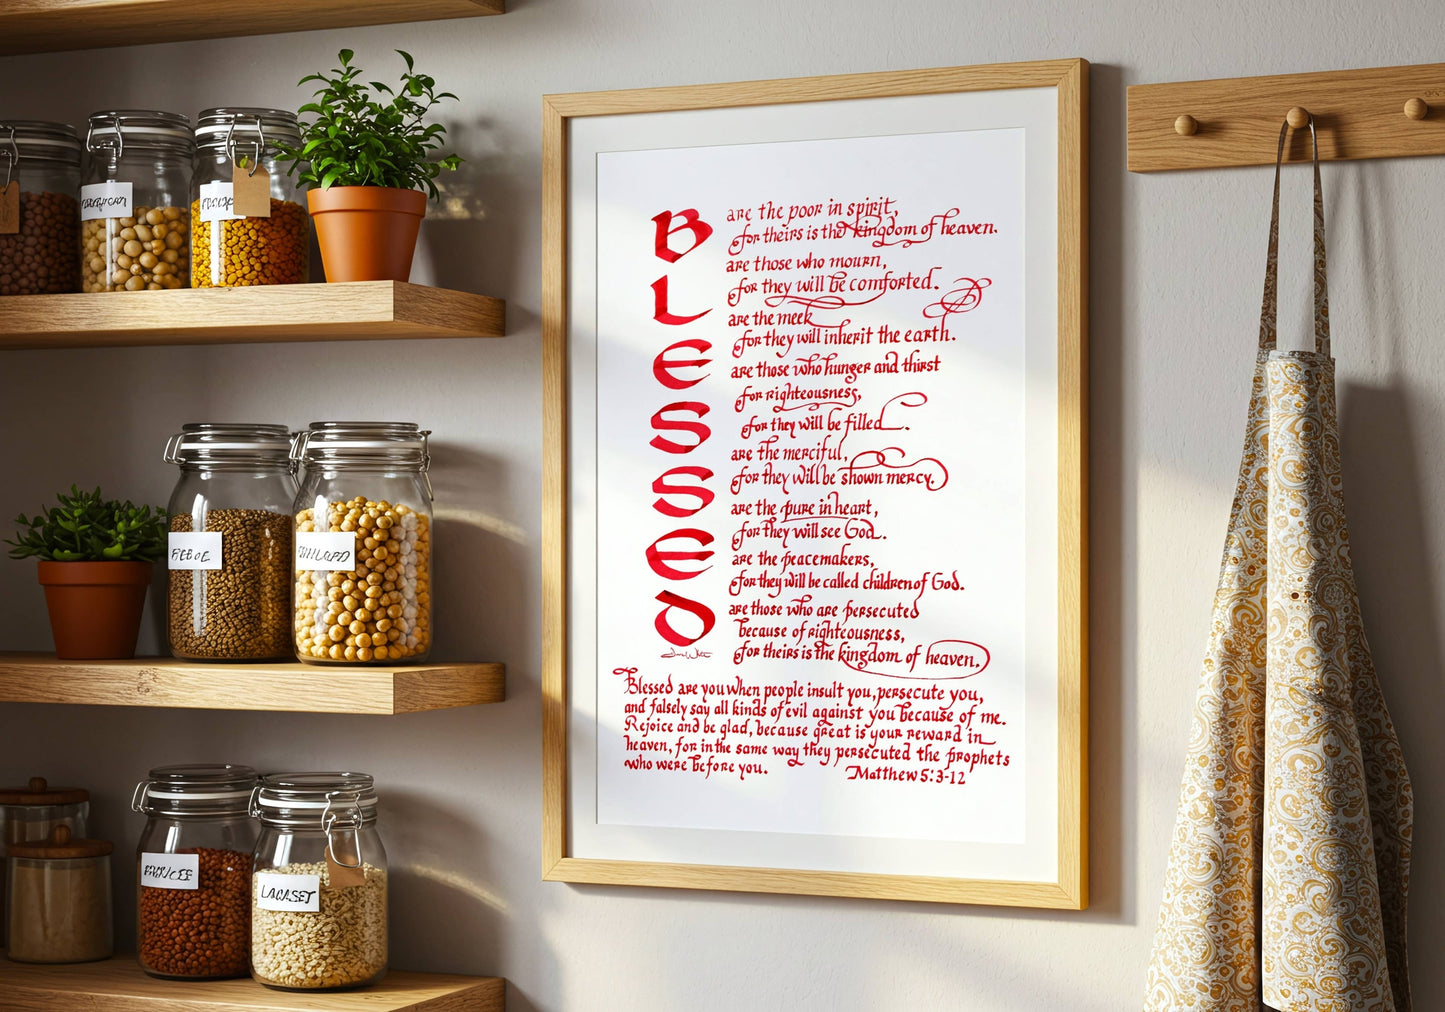 BLESSED
are the poor in spirit,
for theirs is the kingdom of heaven.
are those who mourn,
for they will be comforted.
are the meek
for they will inherit the earth.
are those who hunger and thirst
for righteousness,
for they will be filled.
are the merciful,
for they will be shown mercy.
are the pure in heart,
for they will see God.
are the peacemakers,
for they will be called children of God.
are those who are persecuted
because of righteousness,
for theirs is the kingdom of heaven.
Blessed are you when people insult you, persecute you,
and falsely say all kinds of evil against you because of me.
Rejoice and be glad, because great is your reward in
heaven, for in the same way they persecuted the prophets
who were before you.
Matthew 5:3-12
LACASET